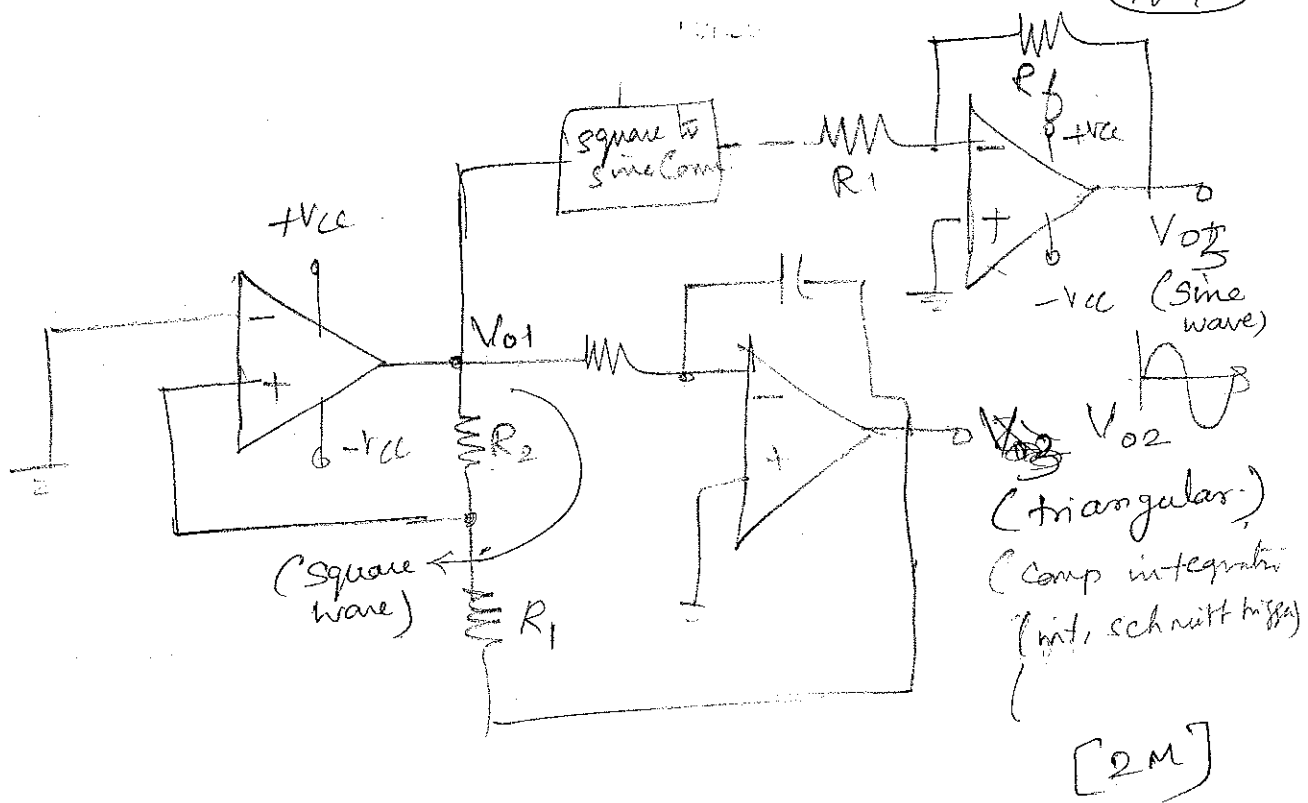 square to
sine Conv.
R1
Rf
+Vcc
-
+
-Vcc
Vo3
(sine
wave)
+Vcc
-
+
-Vcc
Vo1
R2
(square
wave)
R1
-
+
Vo2
(triangular)
(comp integrator
(int, schmitt trigger)
[2M]